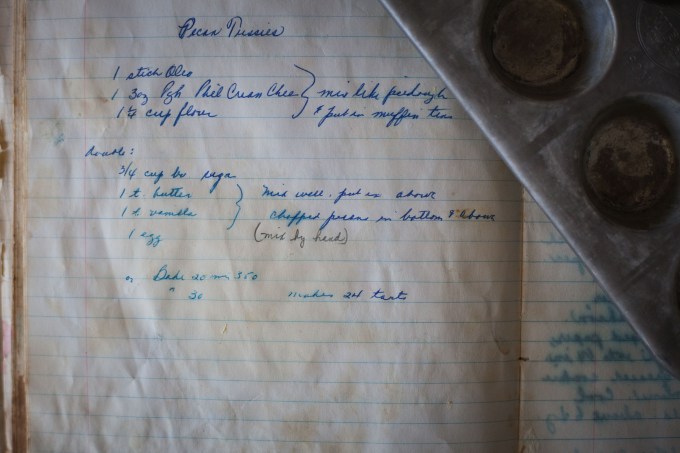 Pecan Tassies
1 stick Oleo
1 3oz Pgk Phil Cream Chee } mix like piedough
cup flour & put in muffin tins
Double:
3/4 cup br sugar
1 t. butter } mix well. put in above
1 t. vanilla chopped pecans in bottom & above
1 egg (mix by hand)
or Bake 20 min 350
" 30 makes 24 tarts